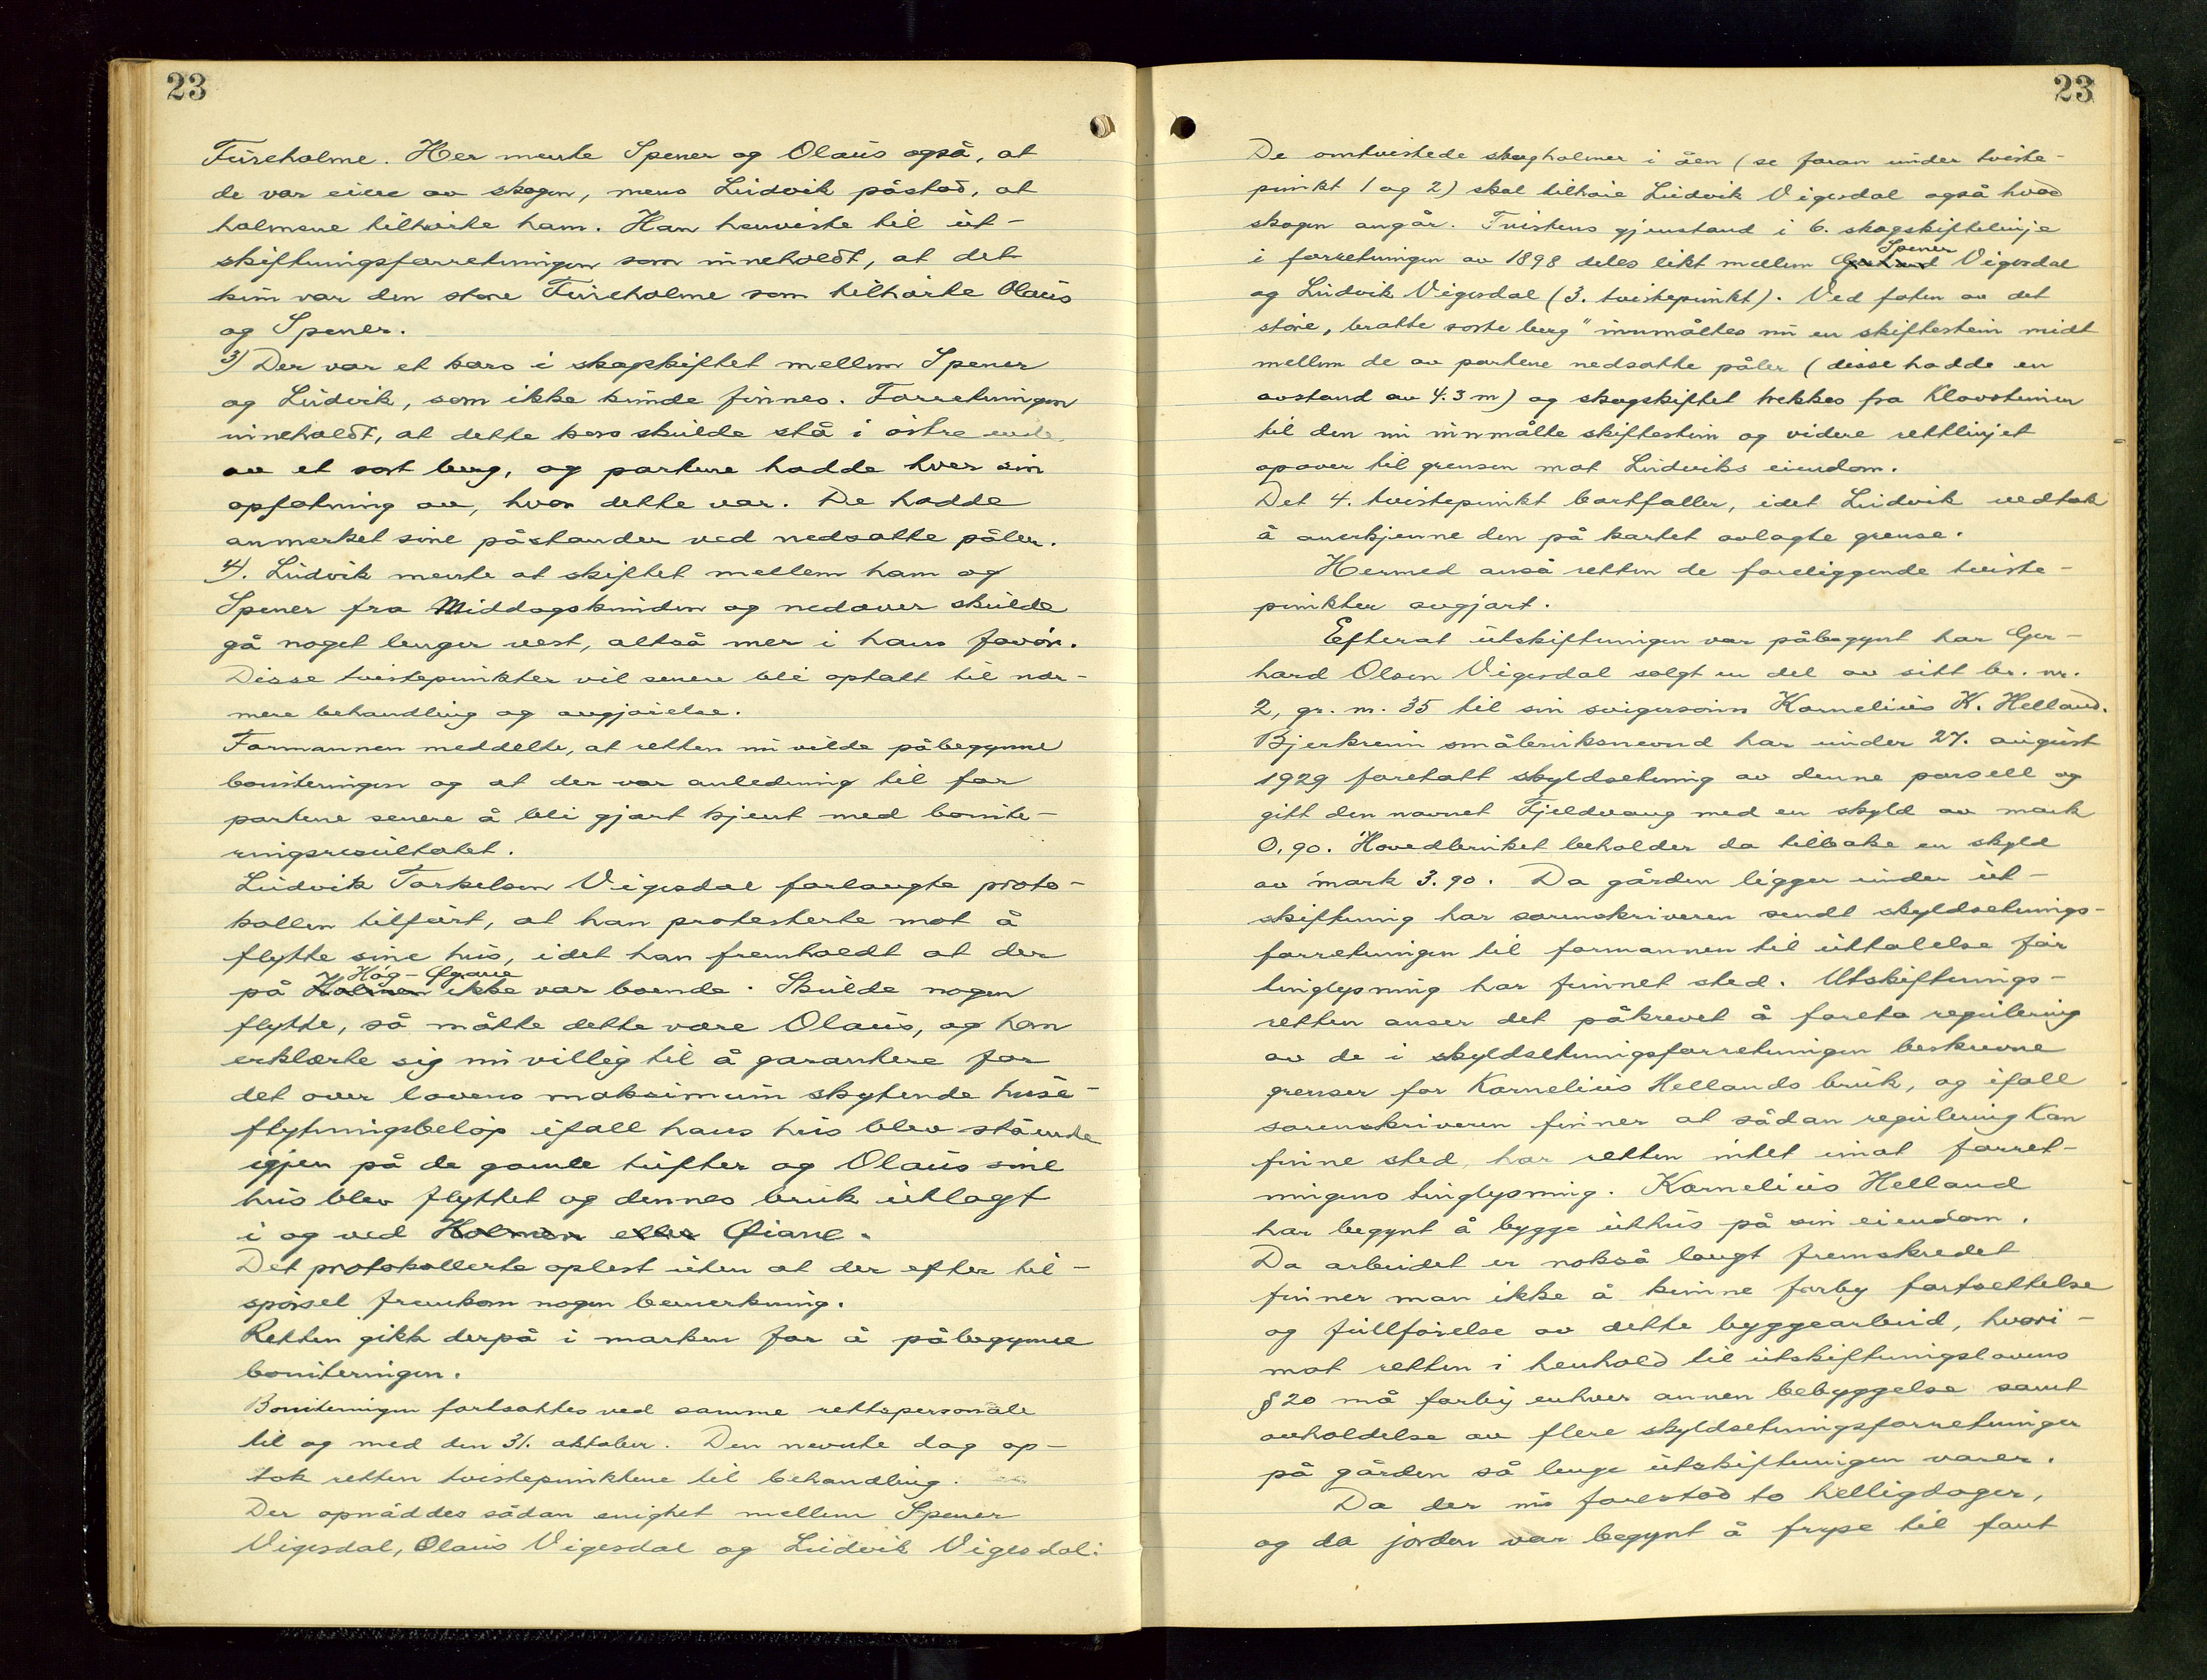 23
Fureholme. Her mente Spener og Olaus også, at
de var eiere av skogen, mens Ludvik påstod, at
holmene tilhørte ham. Han henviste til ut-
skiftningsforretningen som inneholdt, at det
kun var den store Fureholme som tilhørte Olaus
og Spener.
3) Der var et kors i skogskiftet mellem Spener
og Ludvik, som ikke kunde finnes. Forretningen
inneholdt, at dette kors skulde stå i østre ende
av et sort berg, og partene hadde hver sin
opfatning av, hvor dette var. De hadde
anmerket sine påstander ved nedsatte påler.
4). Ludvik mente at skiftet mellem ham og
Spener fra Middagsknuden og nedover skulde
gå noget lenger vest, altså mer i hans favør.
Disse tvistepunkter vil senere bli optatt til nær-
mere behandling og avgjørelse.
Formannen meddelte, at retten nu vilde påbegynne
boniteringen og at der var anledning til for
partene senere å bli gjort kjent med bonite-
ringsresultatet.
Ludvik Torkelsen Vigesdal forlangte proto-
kollen tilført, at han protesterte mot å
flytte sine hus, idet han fremholdt at der
Høg-Øgane
på Holmen ikke var boende. Skulde nogen
flytte, så måtte dette være Olaus, og han
erklærte sig nu villig til å garantere for
det over lovens maksimum skytende huse-
flytningsbeløp ifall hans hus blev stående
igjen på de gamle tufter og Olaus sine
hus blev flyttet og dennes bruk utlagt
i og ved Holmen eller Øiane.
Det protokollerte oplest uten at der efter til-
spørsel fremkom nogen bemerkning.
Retten gikk derpå i marken for å påbegynne
boniteringen.
Boniteringen fortsattes ved samme rettspersonale
til og med den 31. oktober. Den nevnte dag op-
tok retten tvistepunktene til behandling.
Der opnåddes sådan enighet mellem Spener
Vigesdal, Olaus Vigesdal og Ludvik Vigesdal:
23
De omtvistede skogholmer i åen (se foran under tviste-
punkt 1 og 2) skal tilhøre Ludvik Vigesdal også hvad
skogen angår. Tvistens gjenstand i 6. skogskiftelinje
Spener
i forretningen av 1898 deles likt mellem Gerhard Vigesdal
og Ludvik Vigesdal (3. tvistepunkt). Ved foten av det
store, bratte sorte berg" innmåltes nu en skiftestein midt
mellem de av partene nedsatte påler (disse hadde en
avstand av 4.3 m) og skogskiftet trekkes fra Klovsteinen
til den nu innmålte skiftestein og videre rettlinjet
opover til grensen mot Ludviks eiendom.
Det 4. tvistepunkt bortfaller, idet Ludvik vedtok
å anerkjenne den på kartet avlagte grense.
Hermed anså retten de foreliggende tviste-
punkter avgjort.
Efterat utskiftningen var påbegynt har Ger-
hard Olsen Vigesdal solgt en del av sitt br. nr.
2, gr. nr. 35 til sin svigersønn Kornelius K. Helland.
Bjerkreim småbruksnevnd har under 27. august
1929 foretatt skyldsetning av denne parsell og
gitt den navnet Fjeldvang med en skyld av mark
0.90. Hovedbruket beholder da tilbake en skyld
av mark 3.90. Da gården ligger under ut-
skiftning har sorenskriveren sendt skyldsetnings-
forretningen til formannen til uttalelse før
tinglysning har funnet sted. Utskiftnings-
retten anser det påkrevet å foreta regulering
av de i skyldsetningsforretningen beskrevne
grenser for Kornelius Hellands bruk, og ifall
sorenskriveren finner at sådan regulering kan
finne sted, har retten intet imot forret-
ningens tinglysning. Kornelius Helland
har begynt å bygge uthus på sin eiendom.
Da arbeidet er nokså langt fremskredet
finner man ikke å kunne forby fortsettelse
og fullførelse av dette byggearbeid, hvori-
mot retten i henhold til utskiftningslovens
§ 20 må forby enhver annen bebyggelse samt
avholdelse av flere skyldsetningsforretninger
på gården så lenge utskiftningen varer.
Da der nu forestod to helligdager,
og da jorden var begynt å fryse til fant